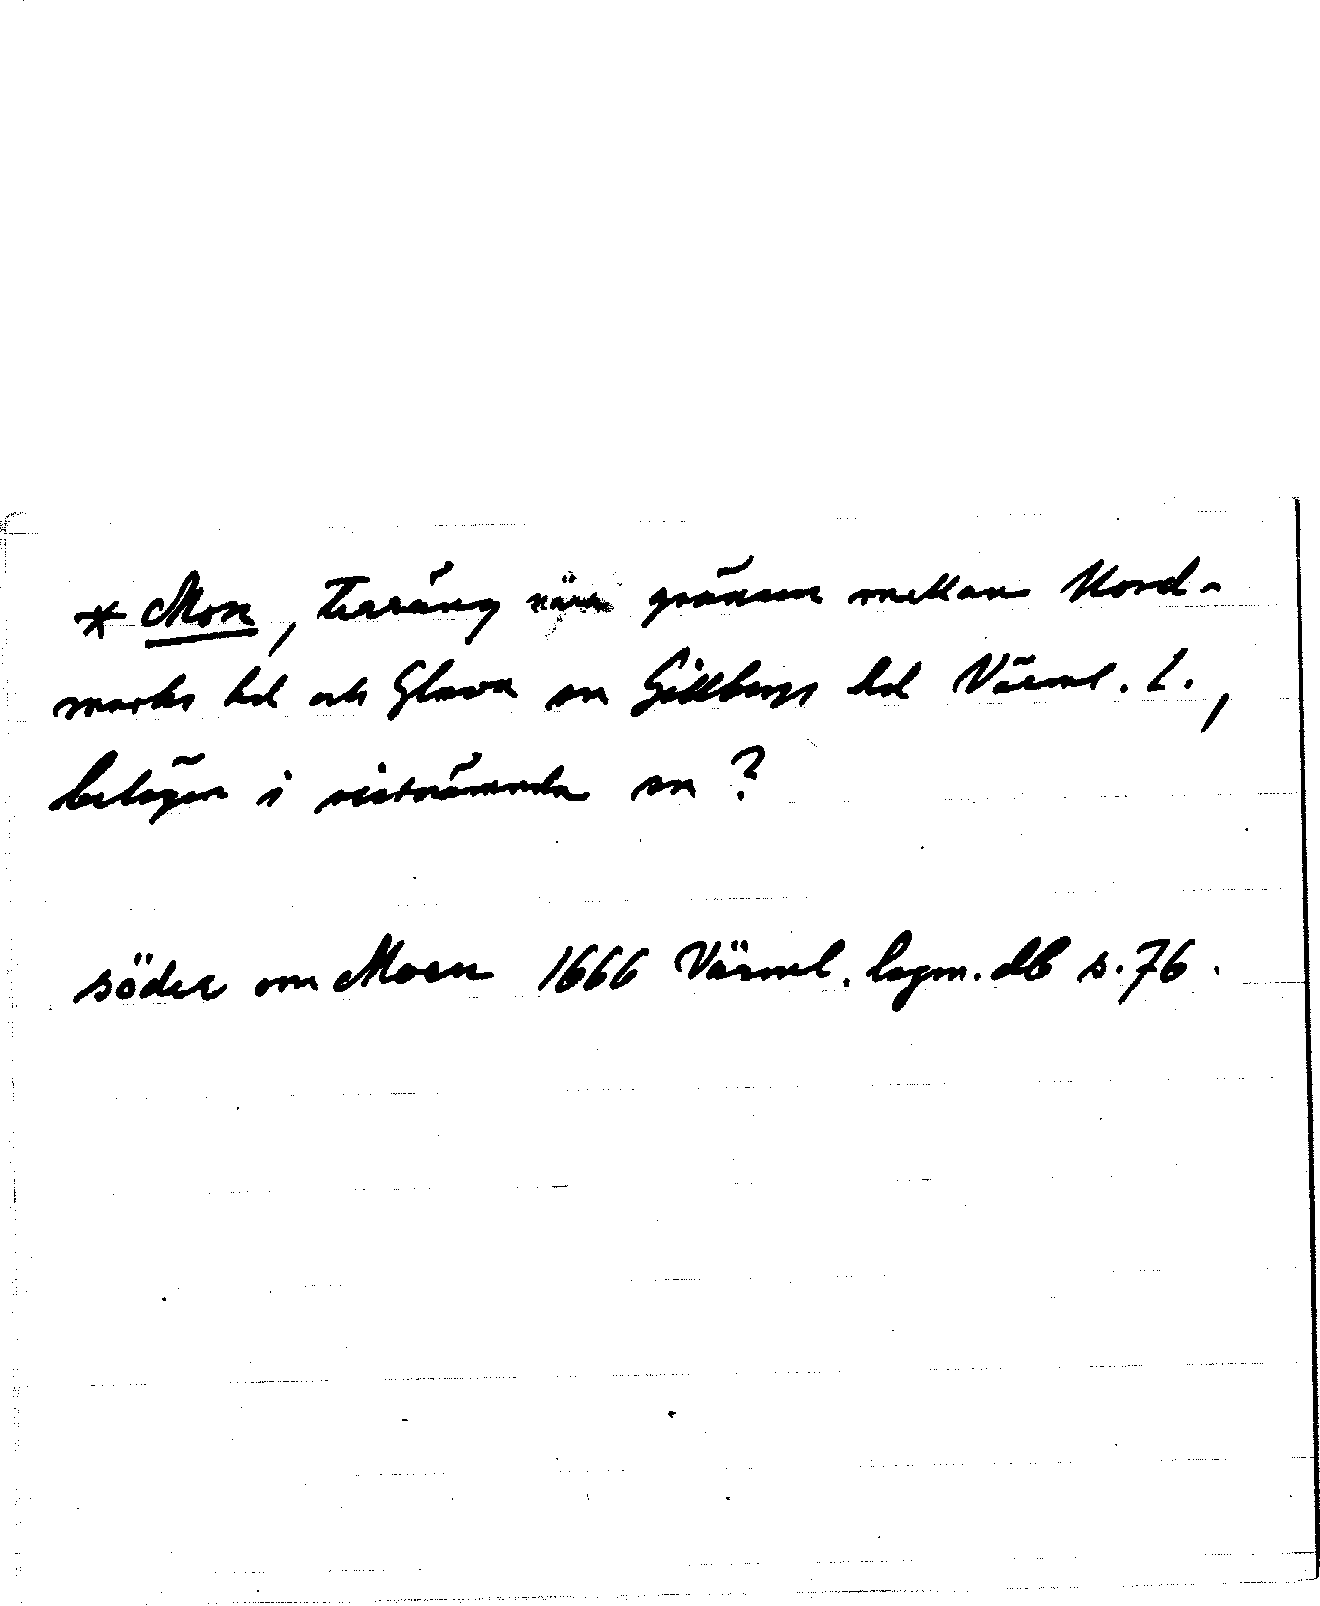 * Mon, terräng nära gränsen mellan Nord-
marks hd och Glava sn Gillbergs hd Värml. l.,
belägen i sistnämnda sn?
söder om Moen 1666 Värml. lagm. db s. 76.